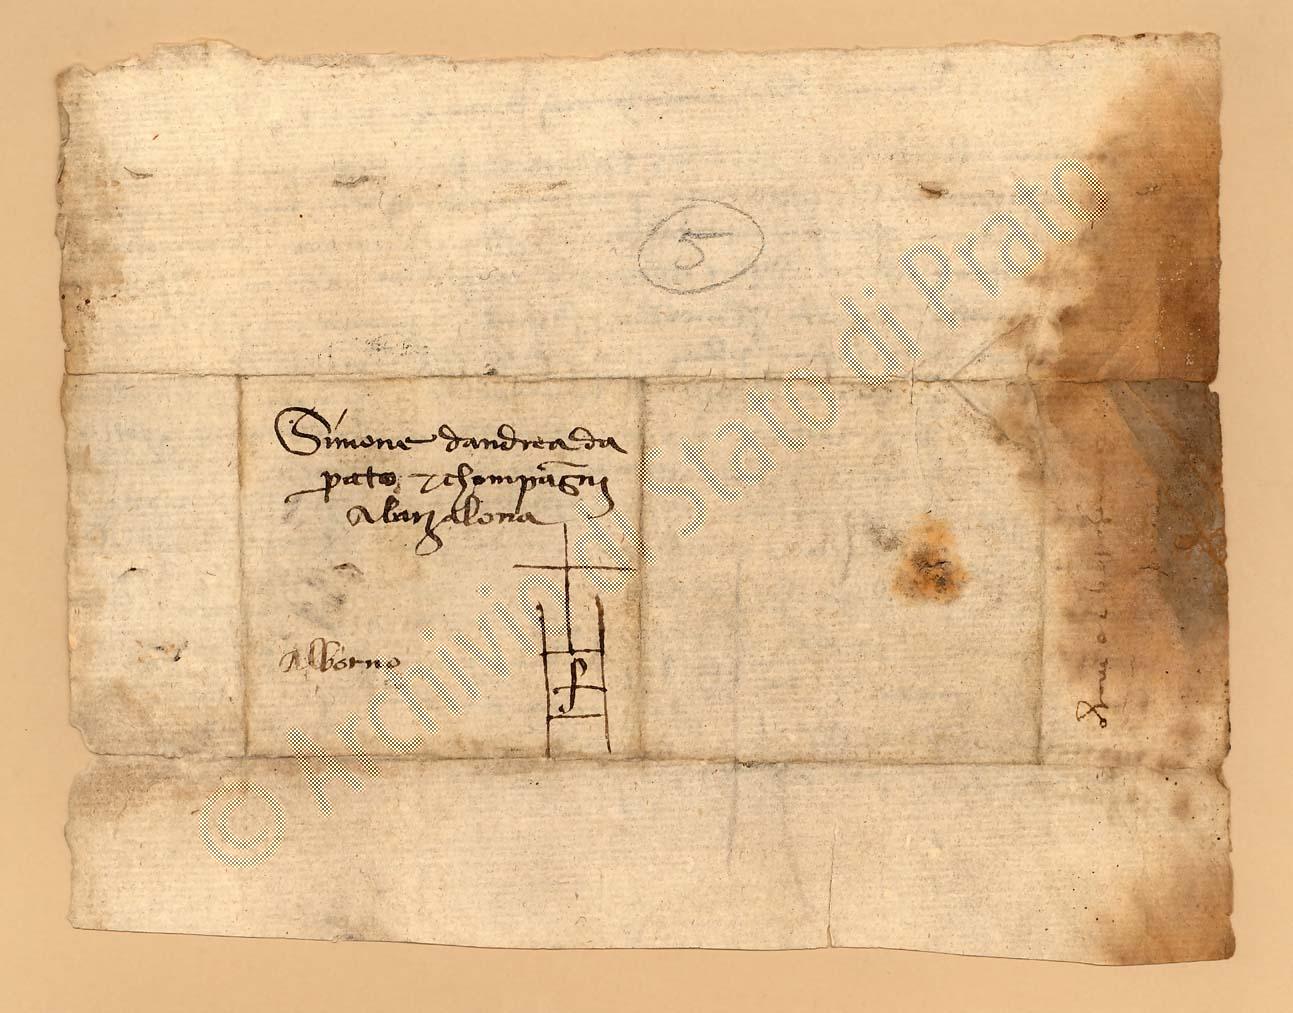 5
Simone dandrea da
prato & chompagni
a barzalona
Alborno
© Archivio di Stato di Prato